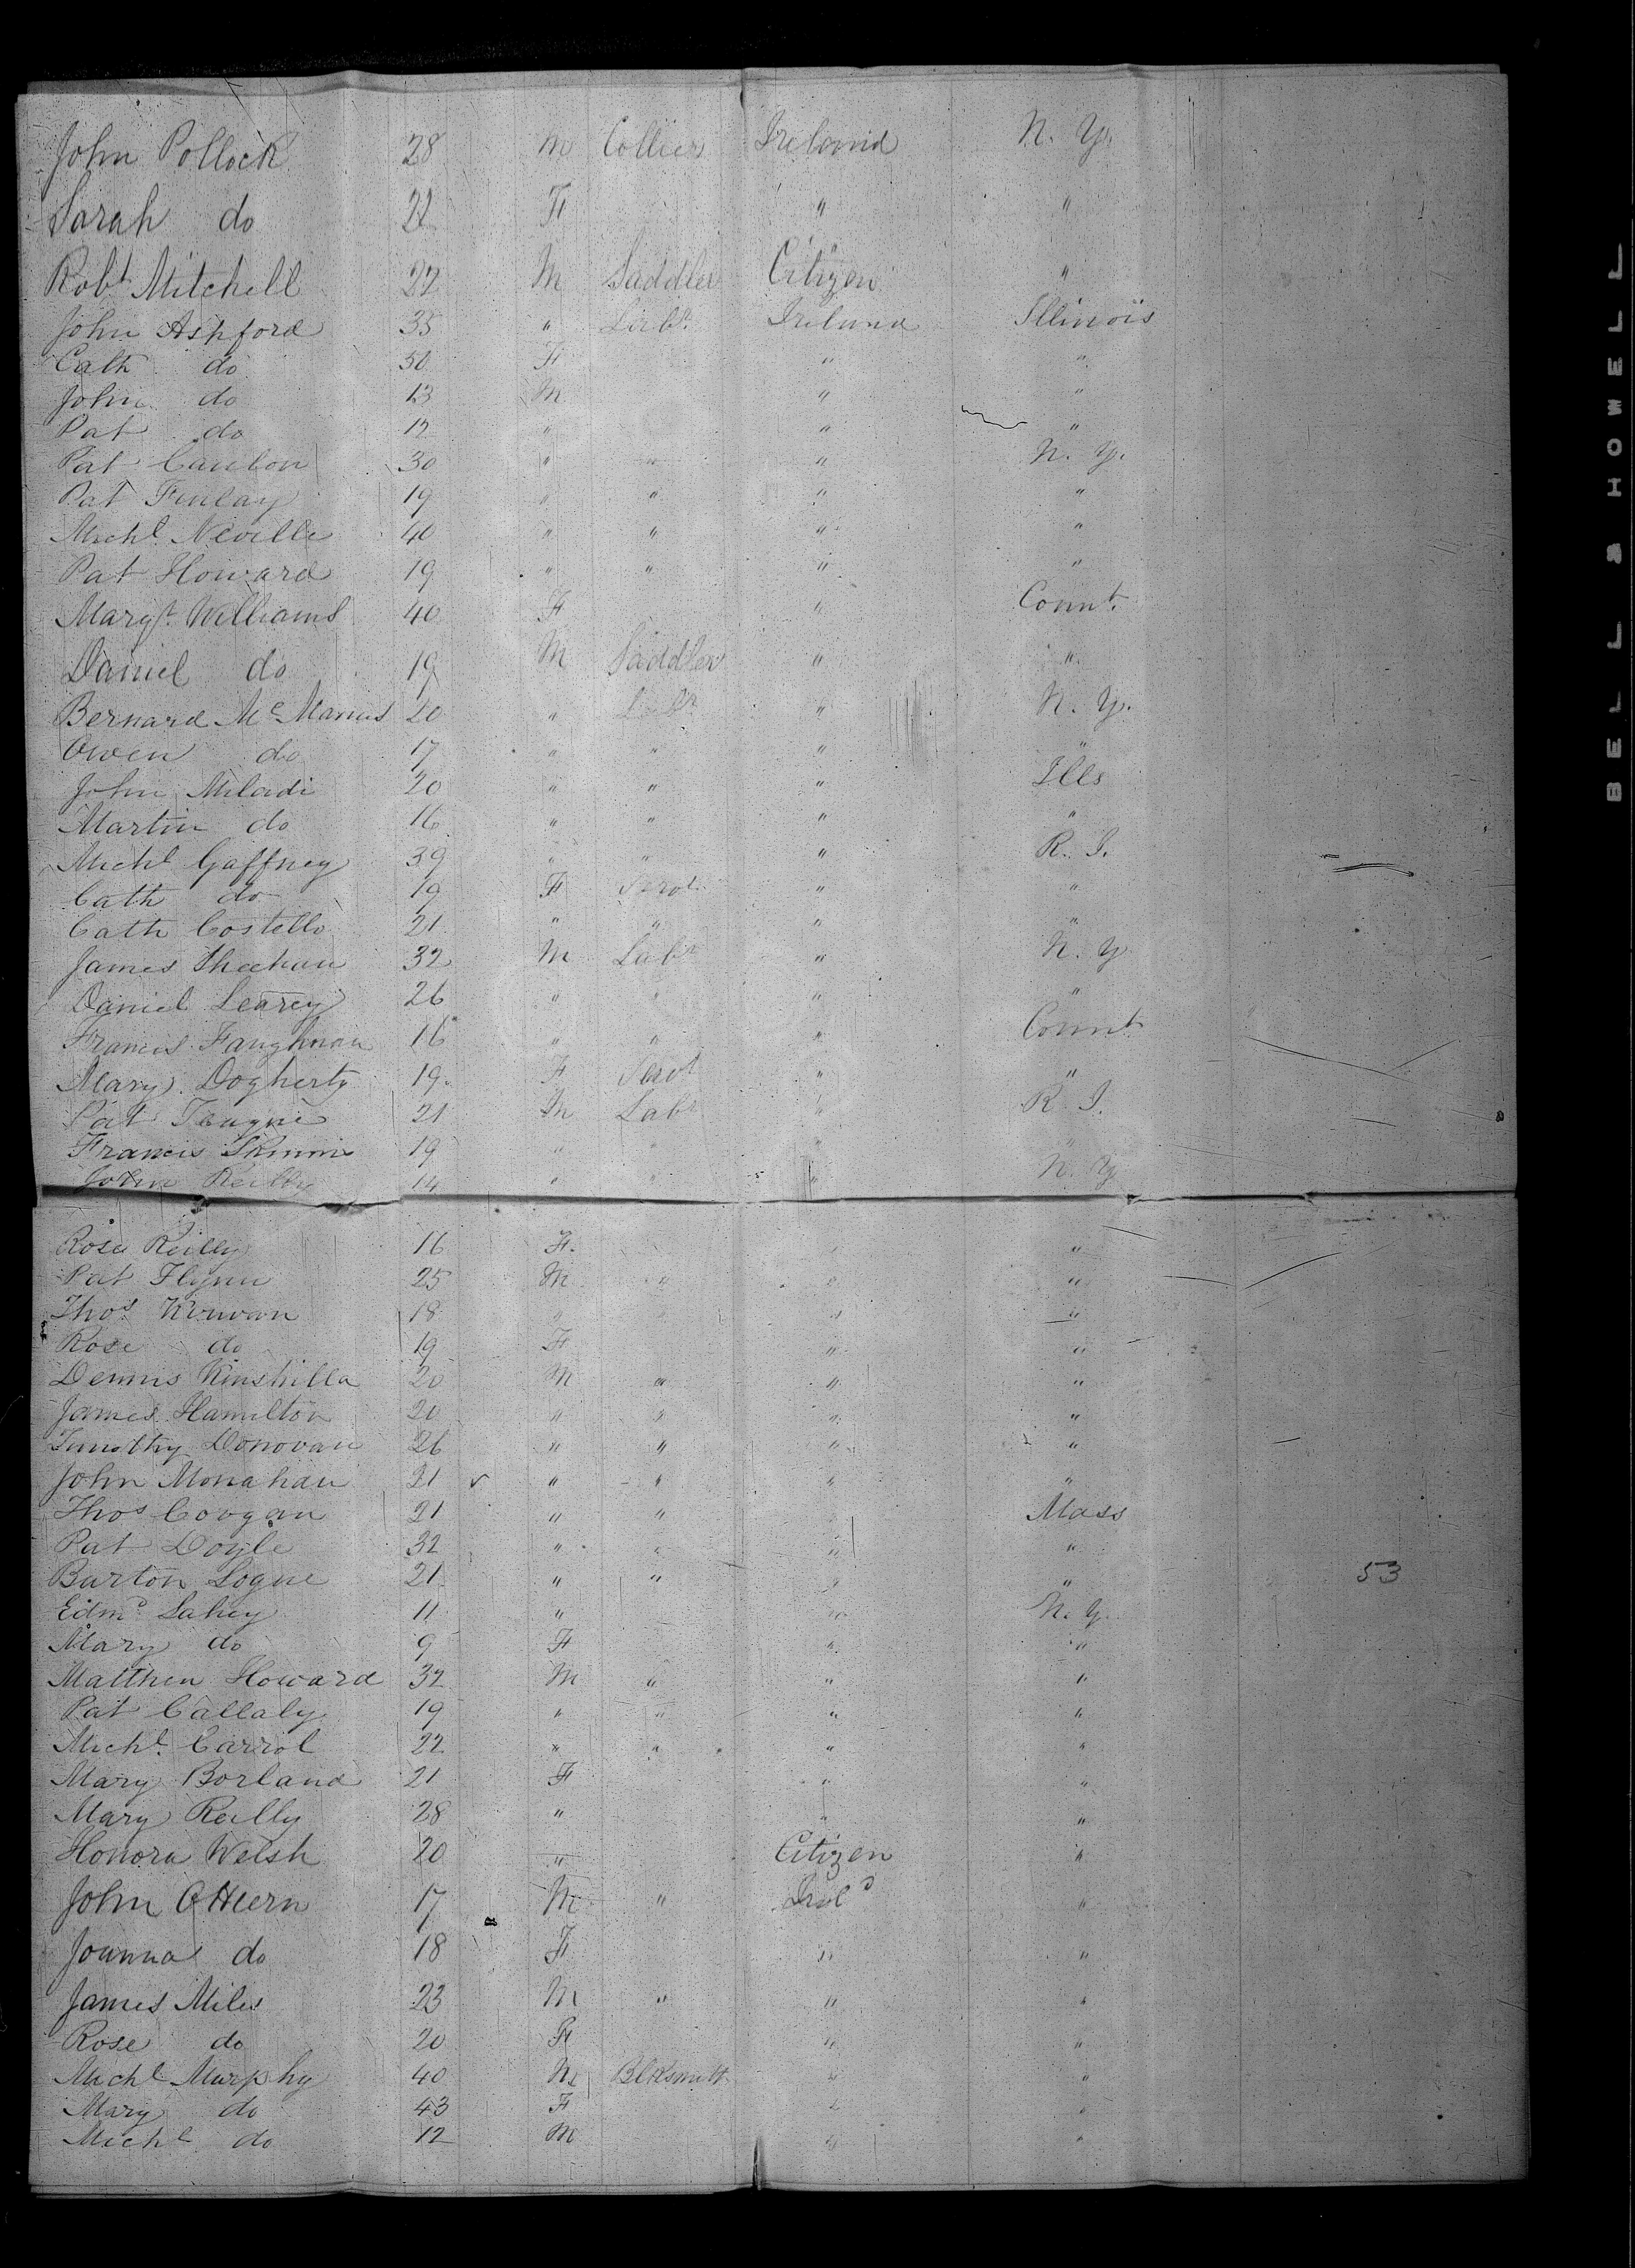 John Pollock 28 M Collier Ireland N. Y.
Sarah do 22 F " "
Robt Mitchell 22 M Saddler Citizen "
John Ashford 35 " Labr Ireland Illinois
Cath do 30 F " "
John do 13 M " "
Pat do 12 " " "
Pat Canlon 30 " " " N. Y.
Pat Finlay 19 " " " "
Michl Neville 40 " " " "
Pat Howard 19 " " " "
Margt Williams 40 F " Connt.
Daniel do 19 M Saddler " "
Bernard McManus 20 " Labr " N. Y.
Owen do 17 " " " "
John Miladi 20 " " " Ills
Martin do 16 " " " "
Michl Gaffney 39 " " " R. I.
Cath do 19 F Servt " "
Cath Costello 21 " " " "
James Sheehan 32 M Labr " N. Y
Daniel Learey 26 " " " "
Francis Faughnan 16 " " " Connt
Mary Dogherty 19 F Servt " "
Pat Teague 21 M Labr " R. I.
Francis Skimmi 19 " " " "
John Reilly 14 " " " N. Y
Rose Reilly 16 F. " "
Pat Flynn 25 M " " "
Thos Kirwan 18 " " "
Rose do 19 F " "
Dennis Kinshilla 20 M " " "
James Hamilton 20 " " " "
Timothy Donovan 26 " " " "
John Monahan 21 " " " "
Thos Coogan 21 " " " Mass
Pat Doyle 32 " " " "
Burton Logue 21 " " " " 53
Edmd Lahey 11 " " N. Y.
Mary do 9 F " "
Matthew Howard 32 M " " "
Pat Callaly 19 " " " "
Michl Carrol 22 " " " "
Mary Borland 21 F " "
Mary Reilly 28 " " "
Honora Welsh 20 " Citizen "
John O Hern 17 M " Ireld "
Joanna do 18 F " "
James Miles 23 M " " "
Rose do 20 F " "
Michl Murphy 40 M Blksmith " "
Mary do 43 F " "
Michl do 12 M " "
BELL & HOWELL